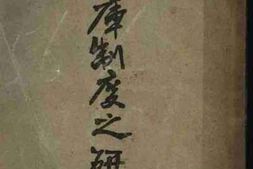 庫制度之研